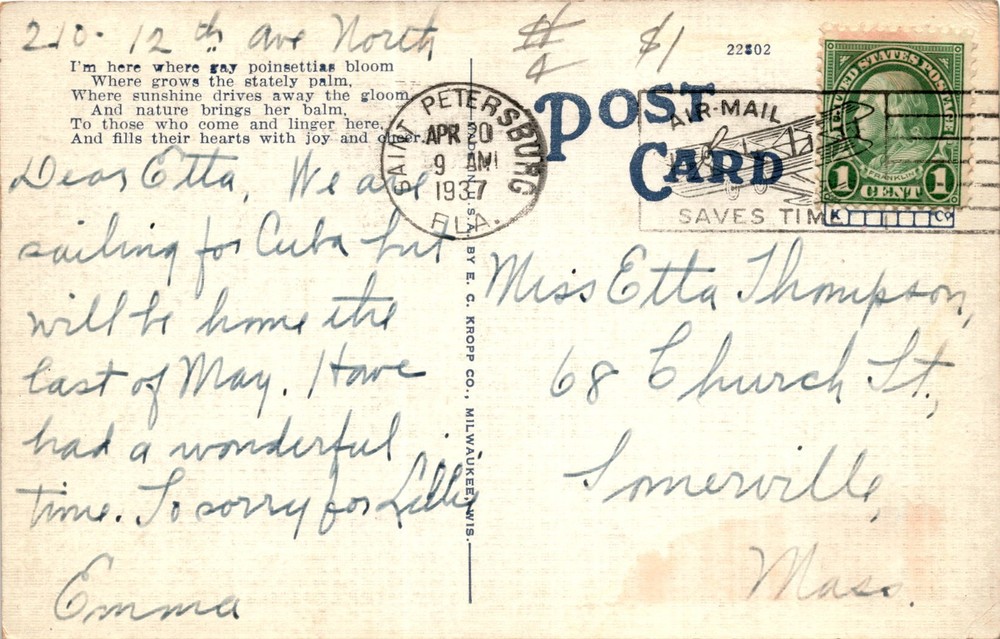 210 - 12th Ave North
# 4
$1
22502
I'm here where gay poinsettias bloom
Where grows the stately palm,
Where sunshine drives away the gloom
And nature brings her balm,
To those who come and linger here,
And fills their hearts with joy and cheer.
POST
CARD
SAINT PETERSBURG
APR 20
9 AM
1937
FLA.
AIR-MAIL
SAVES TIME
UNITED STATES POSTAGE
FRANKLIN
1 CENT 1
K Co
Dear Etta, We are
sailing for Cuba but
will be home the
last of May. Have
had a wonderful
time. So sorry for Lillie
Emma
U.S.A. BY E. C. KROPP CO., MILWAUKEE, WIS.
Miss Etta Thompson,
68 Church St.,
Somerville,
Mass.